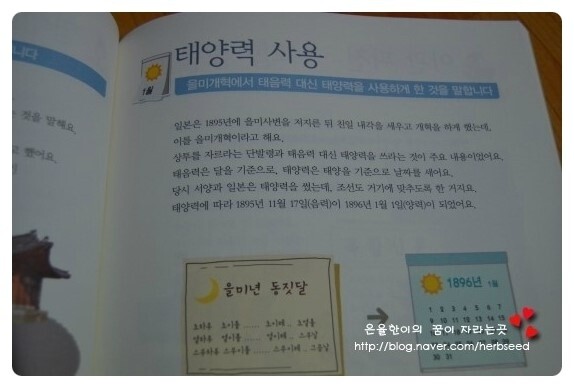 니다
태양력 사용
1월
을미개혁에서 태음력 대신 태양력을 사용하게 한 것을 말합니다
것을 말해요.
했어요.
일본은 1895년에 을미사변을 저지른 뒤 친일 내각을 세우고 개혁을 하게 했는데,
이를 을미개혁이라고 해요.
상투를 자르라는 단발령과 태음력 대신 태양력을 쓰라는 것이 주요 내용이었어요.
태음력은 달을 기준으로, 태양력은 태양을 기준으로 날짜를 세어요.
당시 서양과 일본은 태양력을 썼는데, 조선도 거기에 맞추도록 한 거지요.
태양력에 따라 1895년 11월 17일(음력)이 1896년 1월 1일(양력)이 되었어요.
을미년 동짓달
초하루 초이틀 ...... 초이레 .. 초열흘
열하루 열이틀 ...... 열이레 .. 스무날
스무하루 스무이틀 ... 스무이레 .. 그믐날
1896년 1월
1 2 3 4 5 6 7
30 31
은율한이의 꿈이 자라는곳
http://blog.naver.com/herbseed